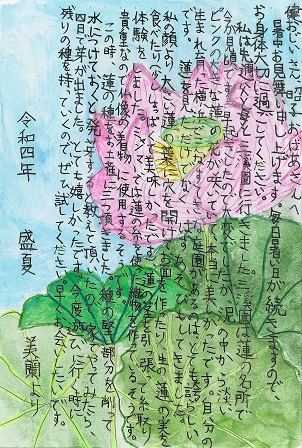 健おじいさん、昭子おばあさん
暑中お見舞い申し上げます。毎日暑い日が続きますので、
お身体大切に過ごしてください。
私は先週、父と母と三溪園に行きました。三溪園は蓮の名所で
今が見頃です。早起きしたので大変でしたが、泥の中から淡い
ピンクの大きな蓮の花が咲いていて、本当に美しかったです。自分が
生まれ育った横浜にこんなすてきな庭園があるのはとても誇らしい
です。蓮を見ただけでなく、蓮の葉で
私の顔より大きい蓮の葉に穴を開けてお面を作ったり、生の蓮の実を
食べたり、蓮の茎を引っ張って糸取り
体験をしました。ミャンマーでは蓮の糸を使って織物を作っているそうです。
貴重なので仏像の着物に使用するそうです。
この時、蓮の種をお土産に三つ頂きました。種の堅い部分を削って
水につけておくと発芽すると教えて頂いたので、家でやってみたら、
四日で芽が出ました。とても嬉しかったです。今度遊びに行く時に
残りの種を持っていくのでぜひ試してください。早くお会いしたいです。
令和四年 盛夏
美蘭より